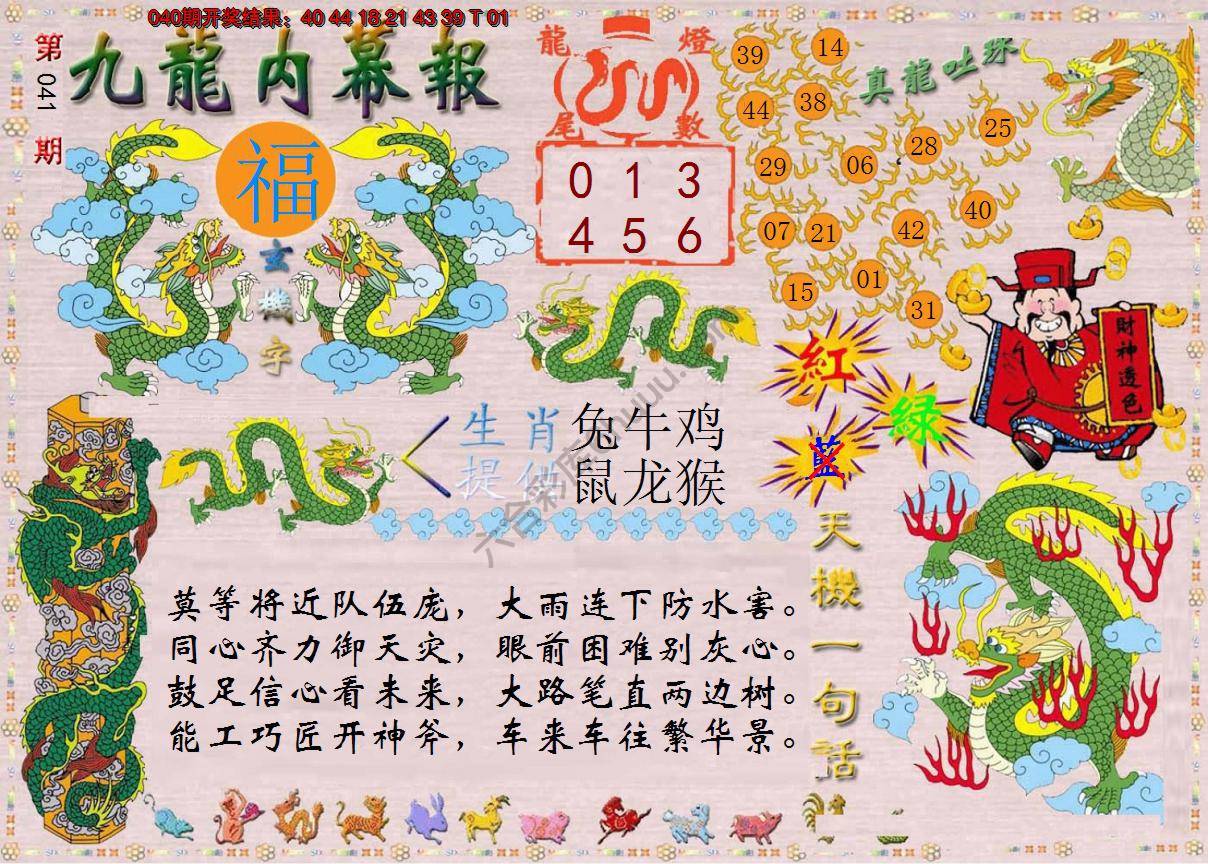 040期开奖结果：40 44 18 21 43 39 T 01
第041期
九龍内幕報
福
玄機字
龍燈
尾數
0 1 3
4 5 6
真龍吐珠
39 14
44 38
25
28
29 06
40
07 21 42
01
15
31
財神透色
紅
綠
藍
生肖 兔牛鸡
提供 鼠龙猴
天機一句話
莫等将近队伍庞，大雨连下防水害。
同心齐力御天灾，眼前困难别灰心。
鼓足信心看未来，大路笔直两边树。
能工巧匠开神斧，车来车往繁华景。